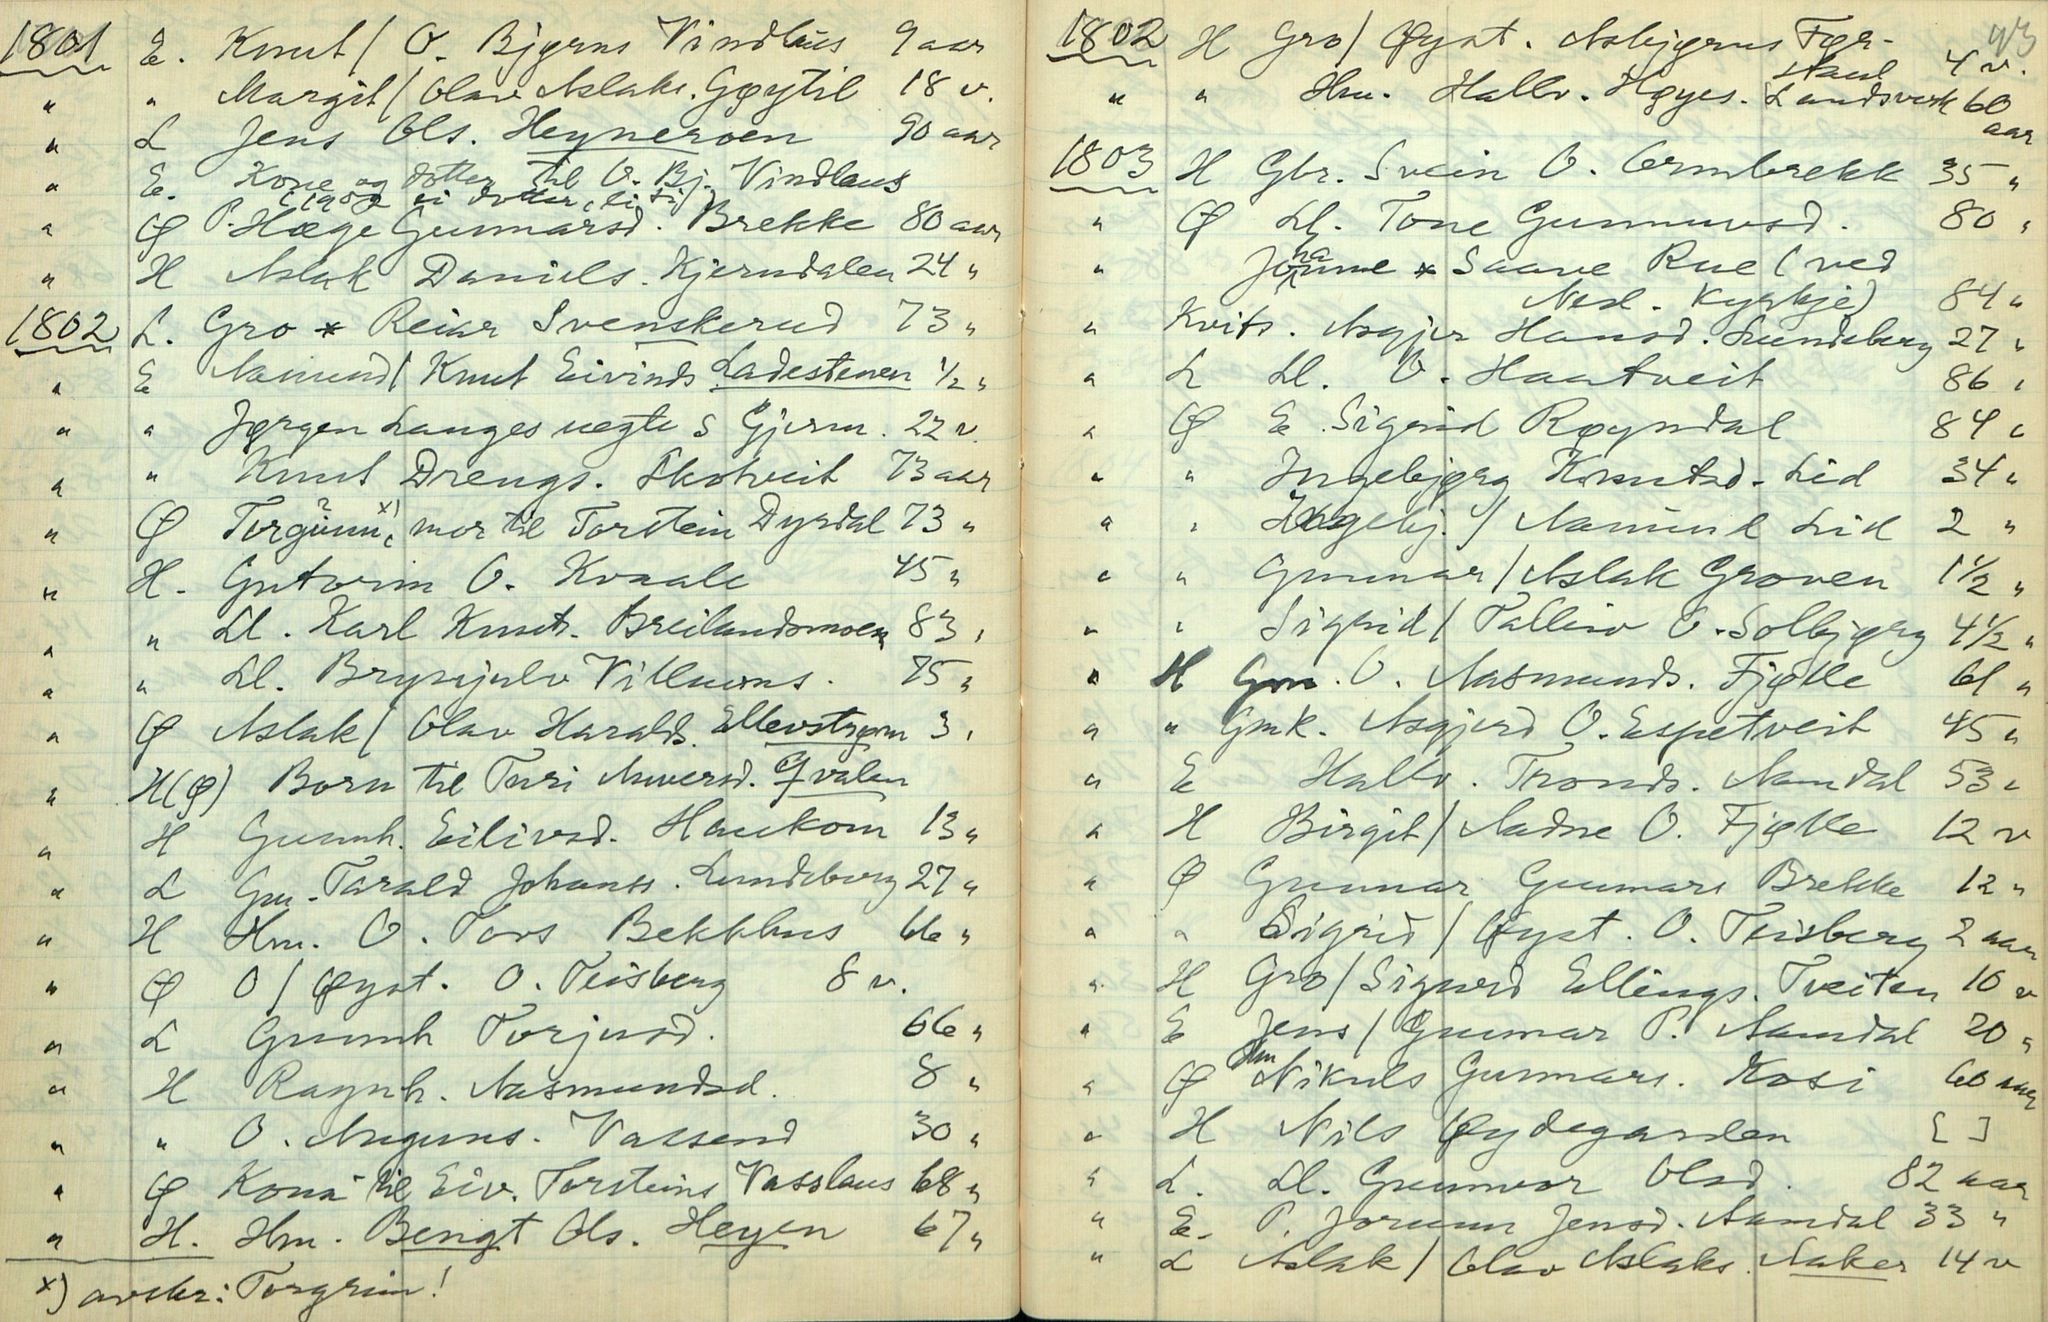 1801 E. Knut / O. Bjørns Vindlaus 9 aar
" " Margit / Olav Aslaks. Gøytil 18 v.
" L Jens Ols. Heyneroen 90 aar
" E. Kone og dotter til O. Bj. Vindlaus
" Ø P. Hæge Gunnarsd. Brekke 80 aar
" H Aslak Daniels. Kjerndalen 24 "
1802 L. Gro * Reiar Svenskerud 73 "
" E Aamund / Knut Eivinds Ladestenen 1/2 "
" " Jørgen Langes uegte S Gjerm. 22 v.
" " Knut Drengs. Skotveit 73 aar
" Ø Torgunn, x) mor til Torstein Dyrdal 73 "
" H. Gutorm O. Kvaale 45 "
" " Ll. Karl Knuts. Breilandsmoen 83 "
" " Ll. Brynjulv Villums. 75 "
" Ø Aslak / Olav Haralds. Ellevstrøm 3 "
" H(Ø) Born til Turi Anversd. Qvalen
" H Gunnh. Eilivsd. Haukom 13 "
" L Gm. Tarald Johanss. Lundeberg 27 "
" H Hm. O. Tovs Bekkhus 66 "
" Ø O / Øyst. O. Teisberg 8 v.
" L Gunnh Torjusd. 66 "
" H Ragnh. Aasmundsd. 8 "
" " O. Auguns. Vassend 30 "
" Ø Kona til Eiv. Torsteins Vasslaus 68 "
" H. Hm. Bengt Ols. Heyen 67 "
x) avskr: Torgrim!
93
1802 H Gro / Øyst. Asbjørns Før-
naul 4 v.
" " Hm. Hallv. Høyes. Landsverk 60
aar
1803 H Gbr. Svein O. Ormbrekk 35 "
" Ø Ll. Tone Gunnuvsd. 80 "
" Johanne * Saave Rue (ved
Nesl. Kyrkje) 84 "
" Kvits. Asgjer Hansd. Lundeberg 27 "
" L Ll. O. Haatveit 86 "
" Ø E. Sigrid Røyndal 84 "
" " Ingebjørg Knutsd. Lid 34 "
" " Ingebj. / Aamund Lid 2 "
" " Gunnar / Aslak Groven 1 1/2 "
" " Sigrid / Talleiv O. Solbjørg 4 1/2 "
" H Gm. O. Aasmunds. Fjølle 61 "
" " Gmk. Asgjerd O. Espetveit 45 "
" E Hallv. Tronds. Aamdal 53 "
" H Birgit / Aadne O. Fjølle 12 v
" Ø Gunnar Gunnars Brekke 12 "
" " Sigrid / Øyst. O. Teisberg 2 aar
" H Gro / Sigurd Ellings. Tveiten 10 v
" E Jens / Gunnar P. Aamdal 20 "
" Ø Hm Nikuls Gunnars. Kosi 60 aar
" H Nils Øydegarden [ ]
" L. Ll. Gunnvor Olsd. 82 aar
" E. P. Jorunn Jensd. Aamdal 33 "
" L Aslak / Olav Aslaks. Naker 14 v